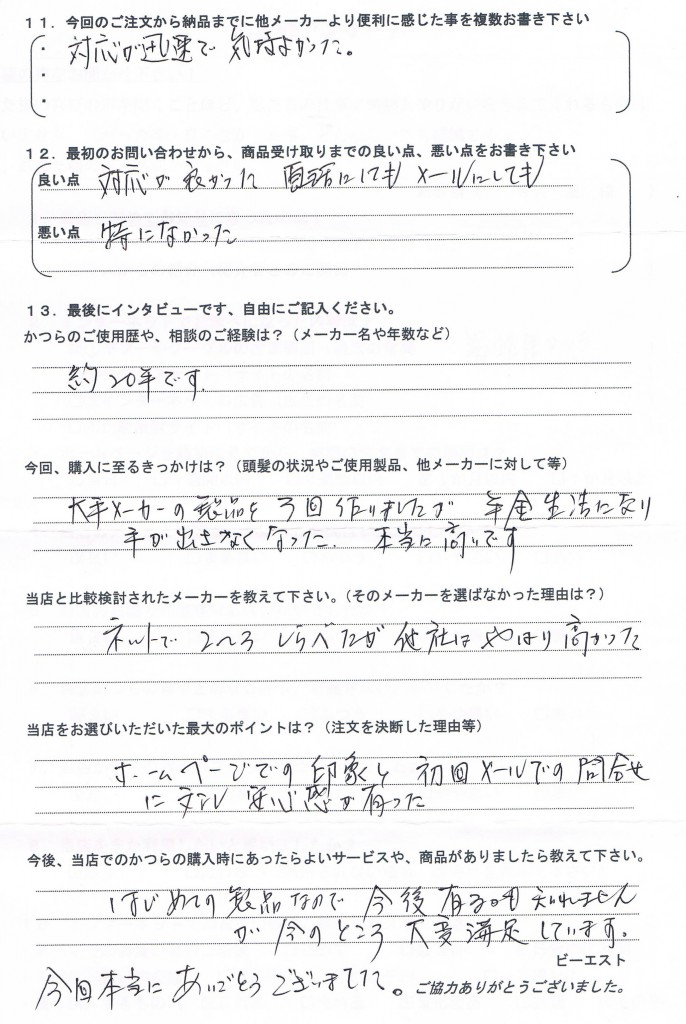 11．今回のご注文から納品までに他メーカーより便利に感じた事を複数お書き下さい
・ 対応が迅速で 気持よかった。
・
・
12．最初のお問い合わせから、商品受け取りまでの良い点、悪い点をお書き下さい
良い点 対応が良かった 電話にしても メールにしても
悪い点 特になかった
13．最後にインタビューです、自由にご記入ください。
かつらのご使用歴や、相談のご経験は？（メーカー名や年数など）
約20年です.
今回、購入に至るきっかけは？（頭髪の状況やご使用製品、他メーカーに対して等）
大手メーカーの製品を 3回 作りましたが 年金生活になり
手が出せなくなった. 本当に高いです
当店と比較検討されたメーカーを教えて下さい。（そのメーカーを選ばなかった理由は？）
ネットで 2〜3 しらべたが 他社は やはり 高かった
当店をお選びいただいた最大のポイントは？（注文を決断した理由等）
ホームページでの 印象と 初回メールでの 問合せ
に対し 安心感が有った
今後、当店でのかつらの購入時にあったらよいサービスや、商品がありましたら教えて下さい。
はじめての 製品なので 今後 有るかも 知れません
が 今のところ 大変 満足しています。
ビーエスト
今回本当に ありがとう ございました。
ご協力ありがとうございました。